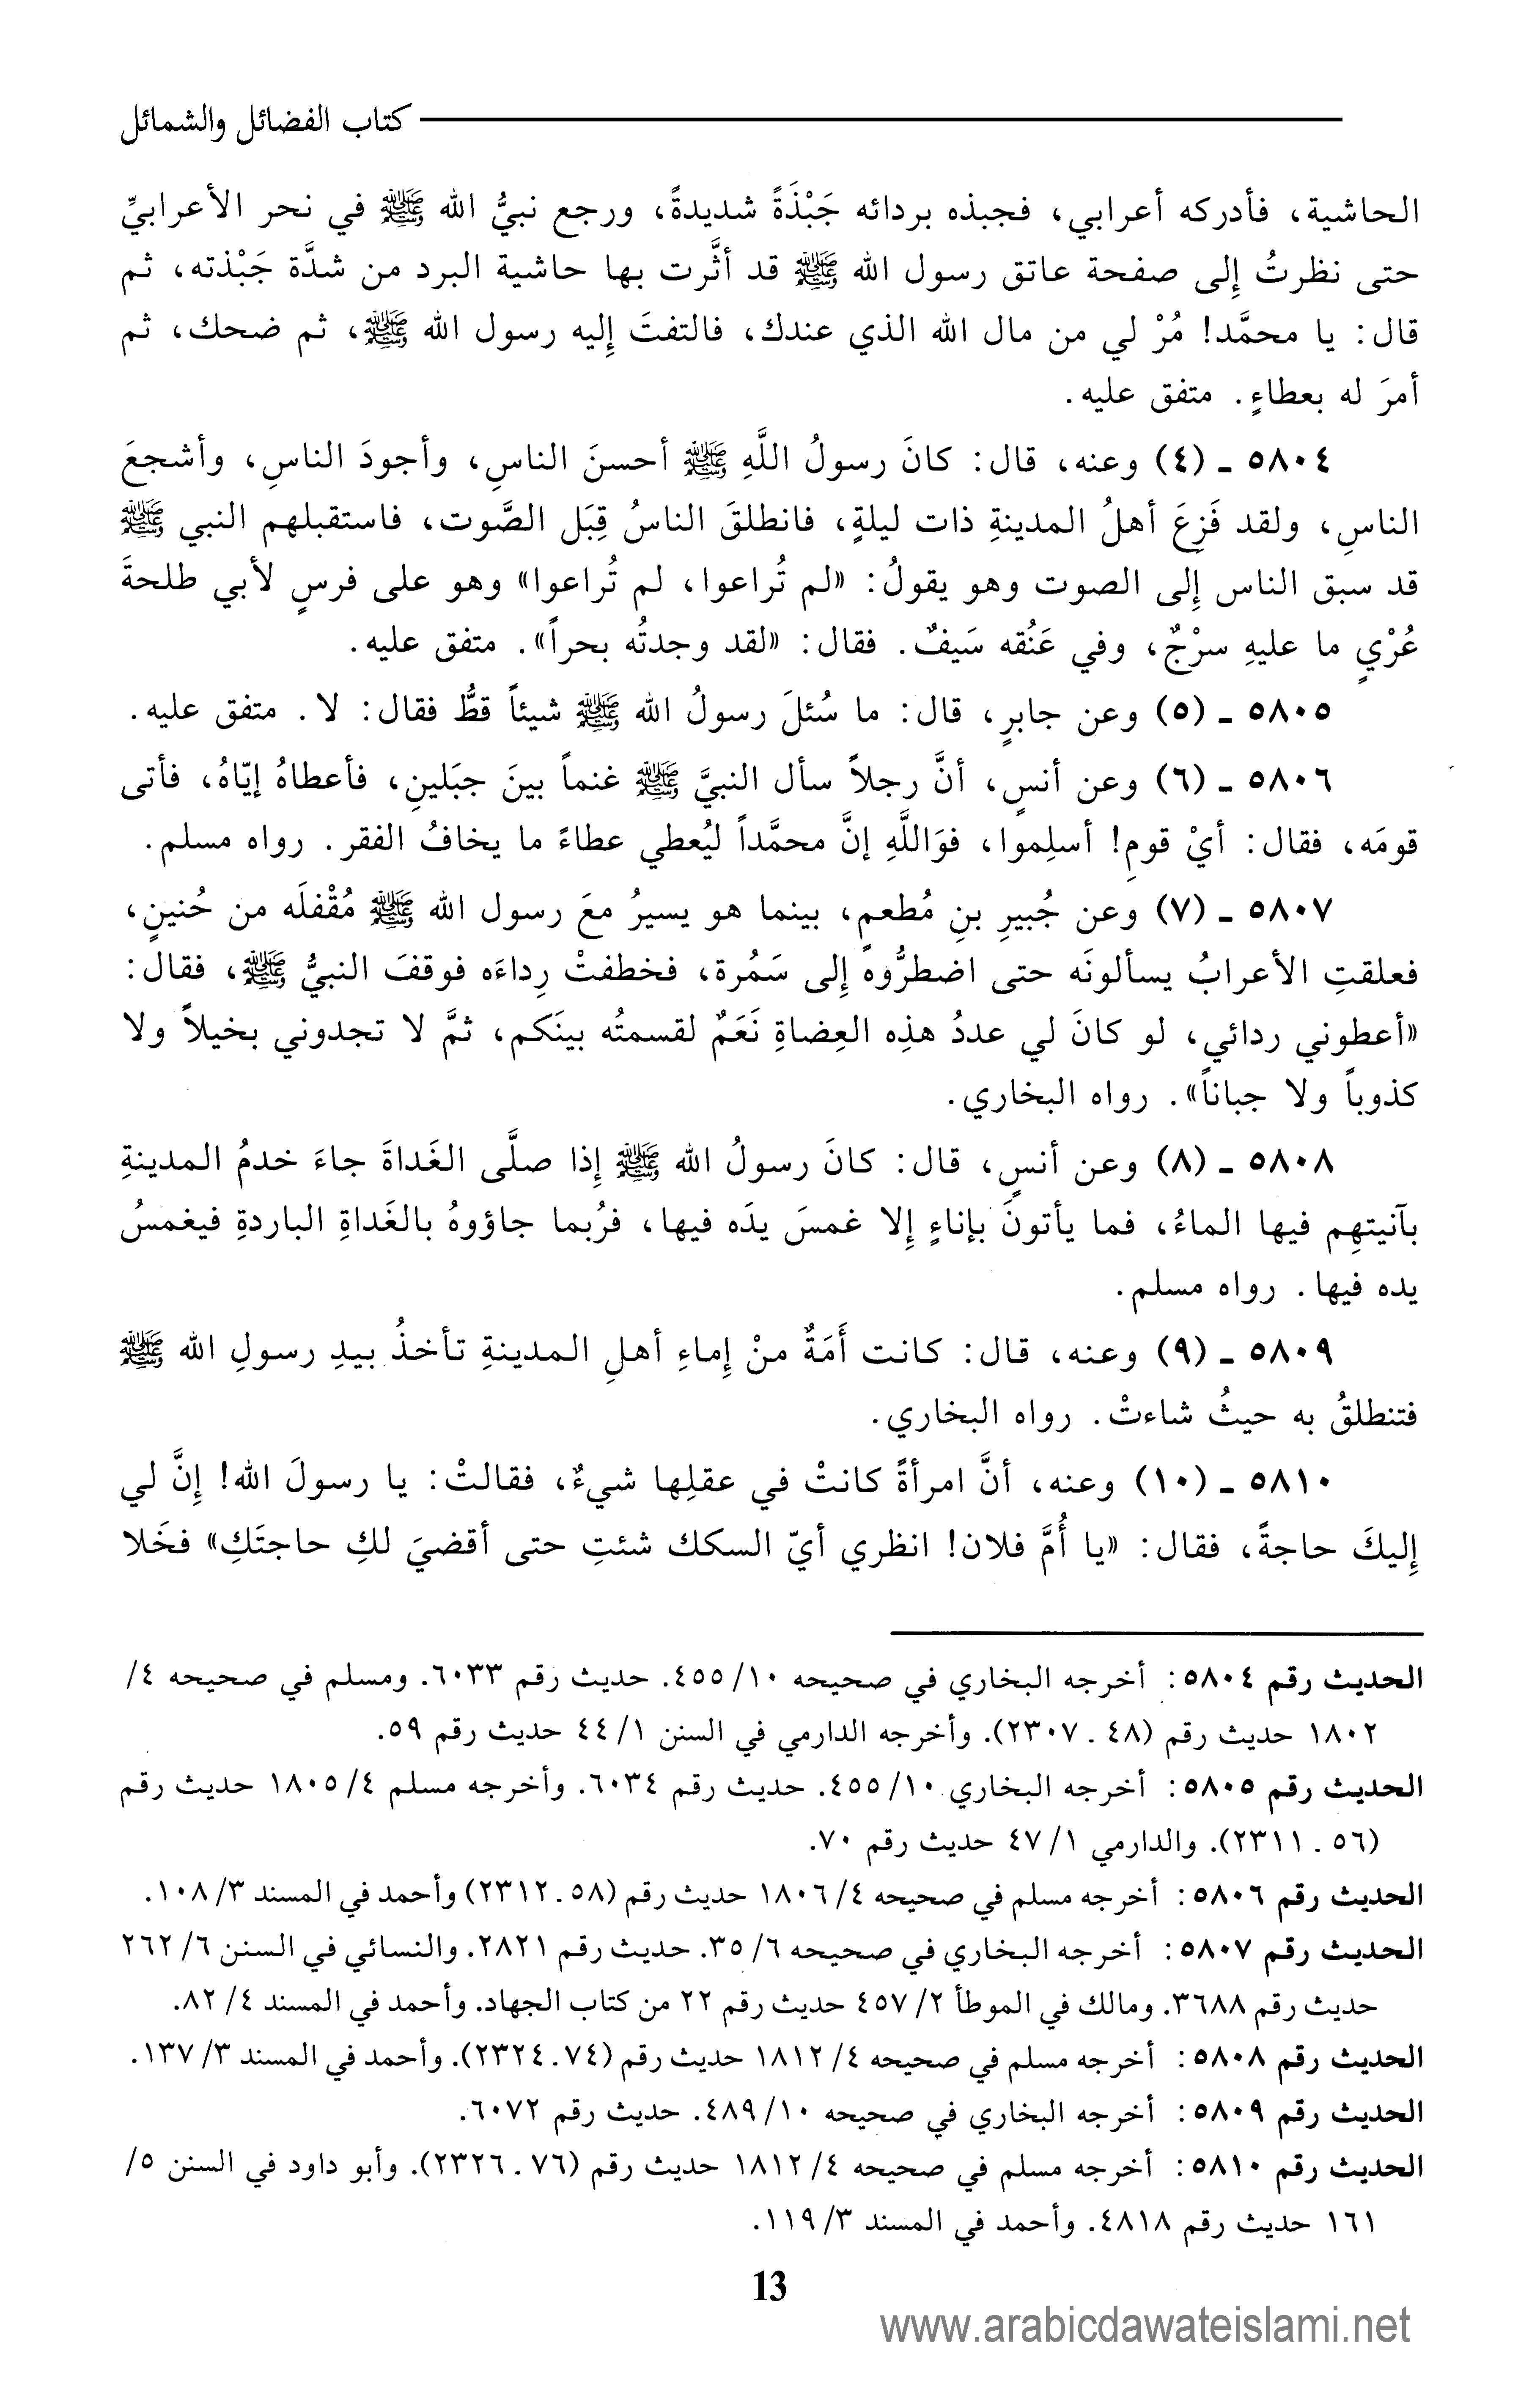 كتاب الفضائل والشمائل
الحاشية، فأدركه أعرابي، فجبذه بردائه جَبْذَةً شديدةً، ورجع نبيُّ الله ﷺ في نحر الأعرابيِّ
حتى نظرتُ إِلى صفحة عاتق رسول الله ﷺ قد أثَّرت بها حاشية البرد من شدَّة جَبْذته، ثم
قال: يا محمَّد! مُرْ لي من مال الله الذي عندك، فالتفتَ إِليه رسول الله ﷺ، ثم ضحك، ثم
أمرَ له بعطاءٍ. متفق عليه.
٥٨٠٤ ـ (٤) وعنه، قال: كانَ رسولُ اللَّهِ ﷺ أحسنَ الناسِ، وأجودَ الناسِ، وأشجعَ
الناسِ، ولقد فَزِعَ أهلُ المدينةِ ذات ليلةٍ، فانطلقَ الناسُ قِبَل الصَّوت، فاستقبلهم النبي ﷺ
قد سبق الناس إِلى الصوت وهو يقولُ: «لم تُراعوا، لم تُراعوا» وهو على فرسٍ لأبي طلحةَ
عُرْيٍ ما عليهِ سرْجٌ، وفي عَنُقه سَيفٌ. فقال: «لقد وجدتُه بحراً». متفق عليه.
٥٨٠٥ ـ (٥) وعن جابرٍ، قال: ما سُئلَ رسولُ الله ﷺ شيئاً قطُّ فقال: لا. متفق عليه.
٥٨٠٦ ـ (٦) وعن أنسٍ، أنَّ رجلاً سأل النبيَّ ﷺ غنماً بينَ جبَلينِ، فأعطاهُ إيّاهُ، فأتى
قومَه، فقال: أيْ قومِ! أسلِموا، فوَاللَّهِ إنَّ محمَّداً ليُعطي عطاءً ما يخافُ الفقر. رواه مسلم.
٥٨٠٧ ـ (٧) وعن جُبيرِ بنِ مُطعمٍ، بينما هو يسيرُ معَ رسول الله ﷺ مُقْفلَه من حُنينٍ،
فعلقتِ الأعرابُ يسألونَه حتى اضطرُّوه إِلى سَمُرة، فخطفتْ رِداءَه فوقفَ النبيُّ ﷺ، فقال:
«أعطوني ردائي، لو كانَ لي عددُ هذِه العِضاةِ نَعَمٌ لقسمتُه بينَكم، ثمَّ لا تجدوني بخيلاً ولا
كذوباً ولا جباناً». رواه البخاري.
٥٨٠٨ ـ (٨) وعن أنسٍ، قال: كانَ رسولُ الله ﷺ إِذا صلَّى الغَداةَ جاءَ خدمُ المدينةِ
بآنيتهِم فيها الماءُ، فما يأتونَ بإناءٍ إِلا غمسَ يدَه فيها، فرُبما جاؤوهُ بالغَداةِ الباردةِ فيغمسُ
يده فيها. رواه مسلم.
٥٨٠٩ ـ (٩) وعنه، قال: كانت أَمَةٌ منْ إِماءِ أهلِ المدينةِ تأخذُ بيدِ رسولِ الله ﷺ
فتنطلقُ به حيثُ شاءتْ. رواه البخاري.
٥٨١٠ ـ (١٠) وعنه، أنَّ امرأةً كانتْ في عقلِها شيءٌ، فقالتْ: يا رسولَ الله! إِنَّ لي
إِليكَ حاجةً، فقال: «يا أُمَّ فلان! انظري أيّ السكك شئتِ حتى أقضيَ لكِ حاجتَكِ» فخَلا
الحديث رقم ٥٨٠٤: أخرجه البخاري في صحيحه ١٠/ ٤٥٥. حديث رقم ٦٠٣٣. ومسلم في صحيحه ٤/
١٨٠٢ حديث رقم (٤٨ ـ ٢٣٠٧). وأخرجه الدارمي في السنن ١/ ٤٤ حديث رقم ٥٩.
الحديث رقم ٥٨٠٥: أخرجه البخاري ١٠/ ٤٥٥. حديث رقم ٦٠٣٤. وأخرجه مسلم ٤/ ١٨٠٥ حديث رقم
(٥٦ ـ ٢٣١١). والدارمي ١/ ٤٧ حديث رقم ٧٠.
الحديث رقم ٥٨٠٦: أخرجه مسلم في صحيحه ٤/ ١٨٠٦ حديث رقم (٥٨ ـ ٢٣١٢) وأحمد في المسند ٣/ ١٠٨.
الحديث رقم ٥٨٠٧: أخرجه البخاري في صحيحه ٦/ ٣٥. حديث رقم ٢٨٢١. والنسائي في السنن ٦/ ٢٦٢
حديث رقم ٣٦٨٨. ومالك في الموطأ ٢/ ٤٥٧ حديث رقم ٢٢ من كتاب الجهاد. وأحمد في المسند ٤/ ٨٢.
الحديث رقم ٥٨٠٨: أخرجه مسلم في صحيحه ٤/ ١٨١٢ حديث رقم (٧٤ ـ ٢٣٢٤). وأحمد في المسند ٣/ ١٣٧.
الحديث رقم ٥٨٠٩: أخرجه البخاري في صحيحه ١٠/ ٤٨٩. حديث رقم ٦٠٧٢.
الحديث رقم ٥٨١٠: أخرجه مسلم في صحيحه ٤/ ١٨١٢ حديث رقم (٧٦ ـ ٢٣٢٦). وأبو داود في السنن ٥/
١٦١ حديث رقم ٤٨١٨. وأحمد في المسند ٣/ ١١٩.
13
www.arabicdawateislami.net